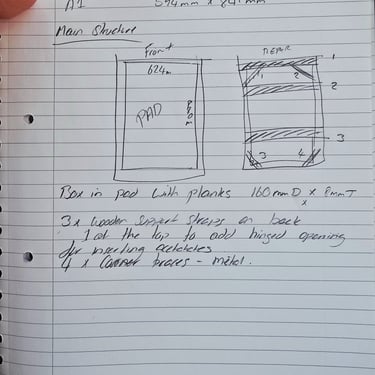 A1 594mm x 841mm
Main Structure
Front
624m
PAD
REAR
1
2
1
2
3
3
4
Box in pad with planks 160mm D x 8mm T
x
3x wooden support straps on back
1 at the top to add hinged opening
for inserting acetates
4 x Corner braces - Metal.